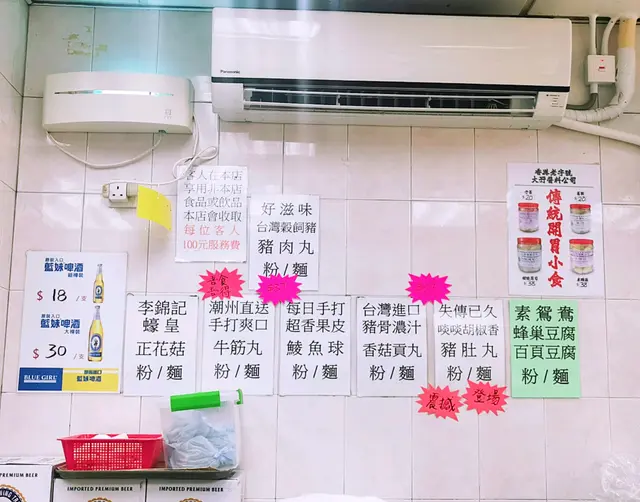 Panasonic
客人在本店
享用非本店
食品或飲品
本店會收取
每位客人
100元服務費
好滋味
台灣穀飼豬
豬肉丸
粉/麵
香港老字號
大羽醬料公司
傳統開胃小食
藍妹啤酒
$ 18 /支
藍妹啤酒
$ 30 /支
BLUE GIRL
藍妹啤酒
李錦記
蠔皇
正花菇
粉/麵
潮州直送
手打爽口
牛筋丸
粉/麵
每日手打
超香果皮
鯪魚球
粉/麵
台灣進口
豬骨濃汁
香菇貢丸
粉/麵
失傳已久
啖啖胡椒香
豬肚丸
粉/麵
素鴛鴦
蜂巢豆腐
百頁豆腐
粉/麵
震撼
登場
PREMIUM BEER
IMPORTED PREMIUM BEER
IMPORTED PREMIUM BEER